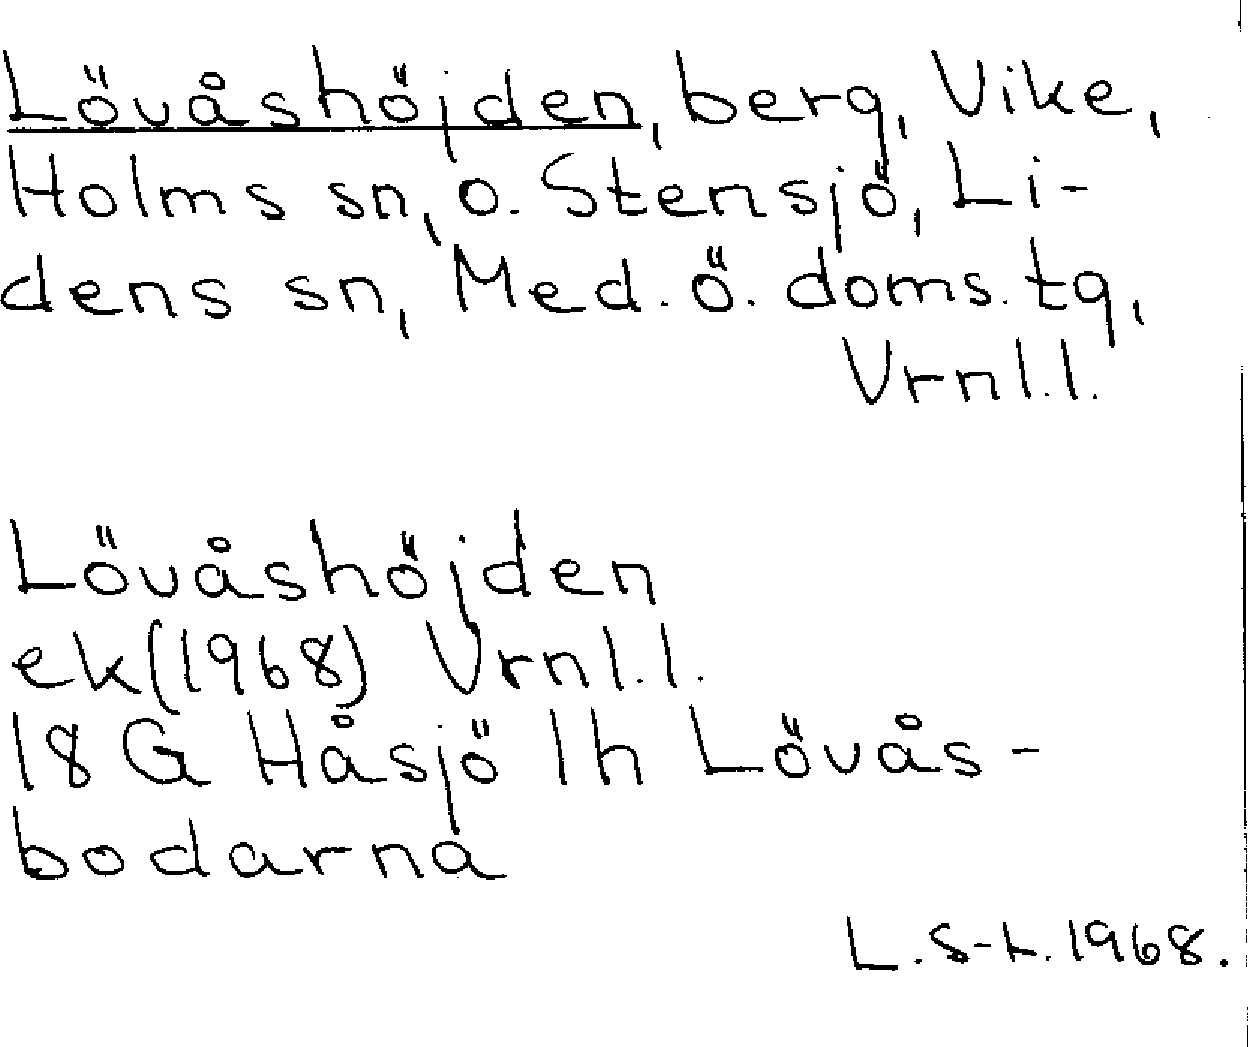 Lövåshöjden, berg, Vike,
Holms sn, o. Stensjö, Li-
dens sn, Med. ö. doms. tg,
Vrnl.l.
Lövåshöjden
ek(1968) Vrnl.l.
18 G Håsjö 1h Lövås-
bodarna
L.S-t. 1968.